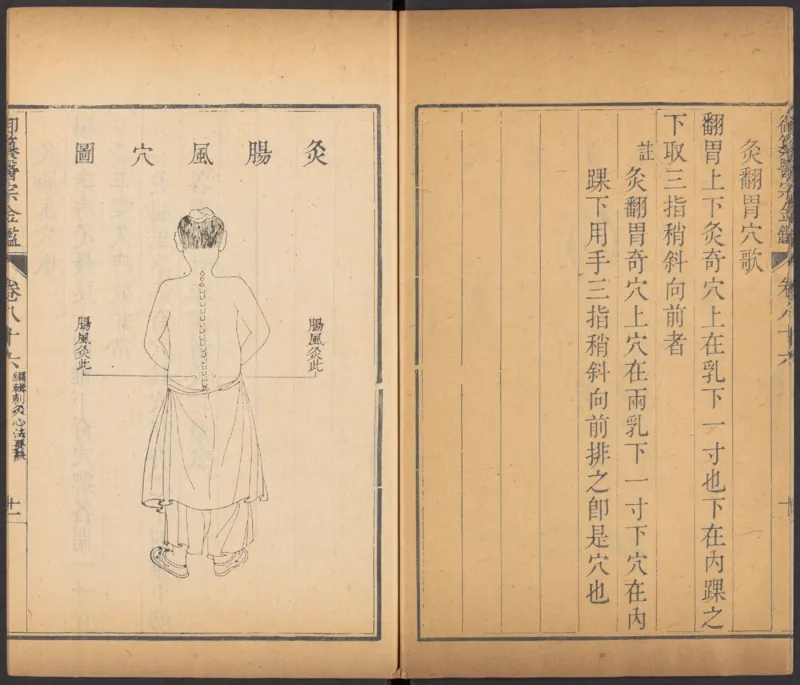 御纂醫宗金鑑 卷八十六
灸翻胃穴歌
翻胃上下灸奇穴上在乳下一寸也下在內踝之
下取三指稍斜向前者
註
灸翻胃奇穴上穴在兩乳下一寸下穴在內
踝下用手三指稍斜向前排之卽是穴也
灸腸風穴圖
腸風灸此
腸風灸此
御纂醫宗金鑑 卷八十六 編輯刺灸心法要訣 十一